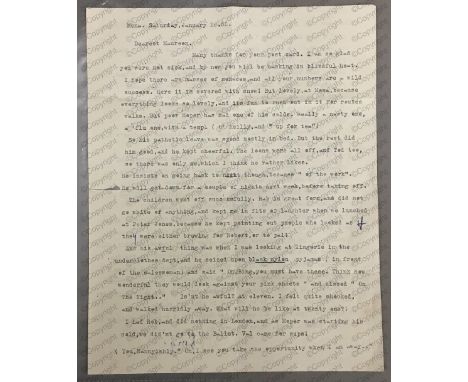 Home. Saturday, January 16.
Dearest Maureen,
Many thanks for your post card. I am so glad
you were not sick, and by now you will be basking in blissful heat.
I hope there are masses of romances, and all your numbers are a wild
success. Here it is covered with snow! But lovely, at Home, because
everything looks so lovely, and its fun to rush out in it for routes
walks. But poor Roper has had one of his colds. Really a nasty one,
a flu one, with a temp! ( Dr Reilly, and " up for tea")
So his pathetic leave was spent mostly in bed. But the rest did
him good, and he kept cheerful. The teens were all off, and Ted too,
so there was only me, which I think he rather likes.
He insists on going back to night though, because " of the work".
He will get down for a couple of nights next week, before taking off.
The children went off successfully. Rob in great form, and did not
go white or anything, and kept me in fits of laughter when we lunched
at Peter Jones, because he kept pointing out people who looked as if
they were either browing for Robert, or to paint.
But his awful thing was when I was looking at lingerie in the
underclothes dept, and he seized upon black nylon pyjamas ( in front
of the saleswoman) and said " Oh Mong, you must have these. Think how
wonderful they would look against your pink sheets " and hissed " On
The Night.." Isn't he awful? At eleven. I felt quite shocked,
and walked hurriedly away. What will he be like at twenty one?
I had Rob, and did nothing in London, and as Roper was starting his
cold, we didn't go to the Ballet. Val came for sips!
( Yes, Mannyishly." Oh, I see you take the opportunity when I am away."